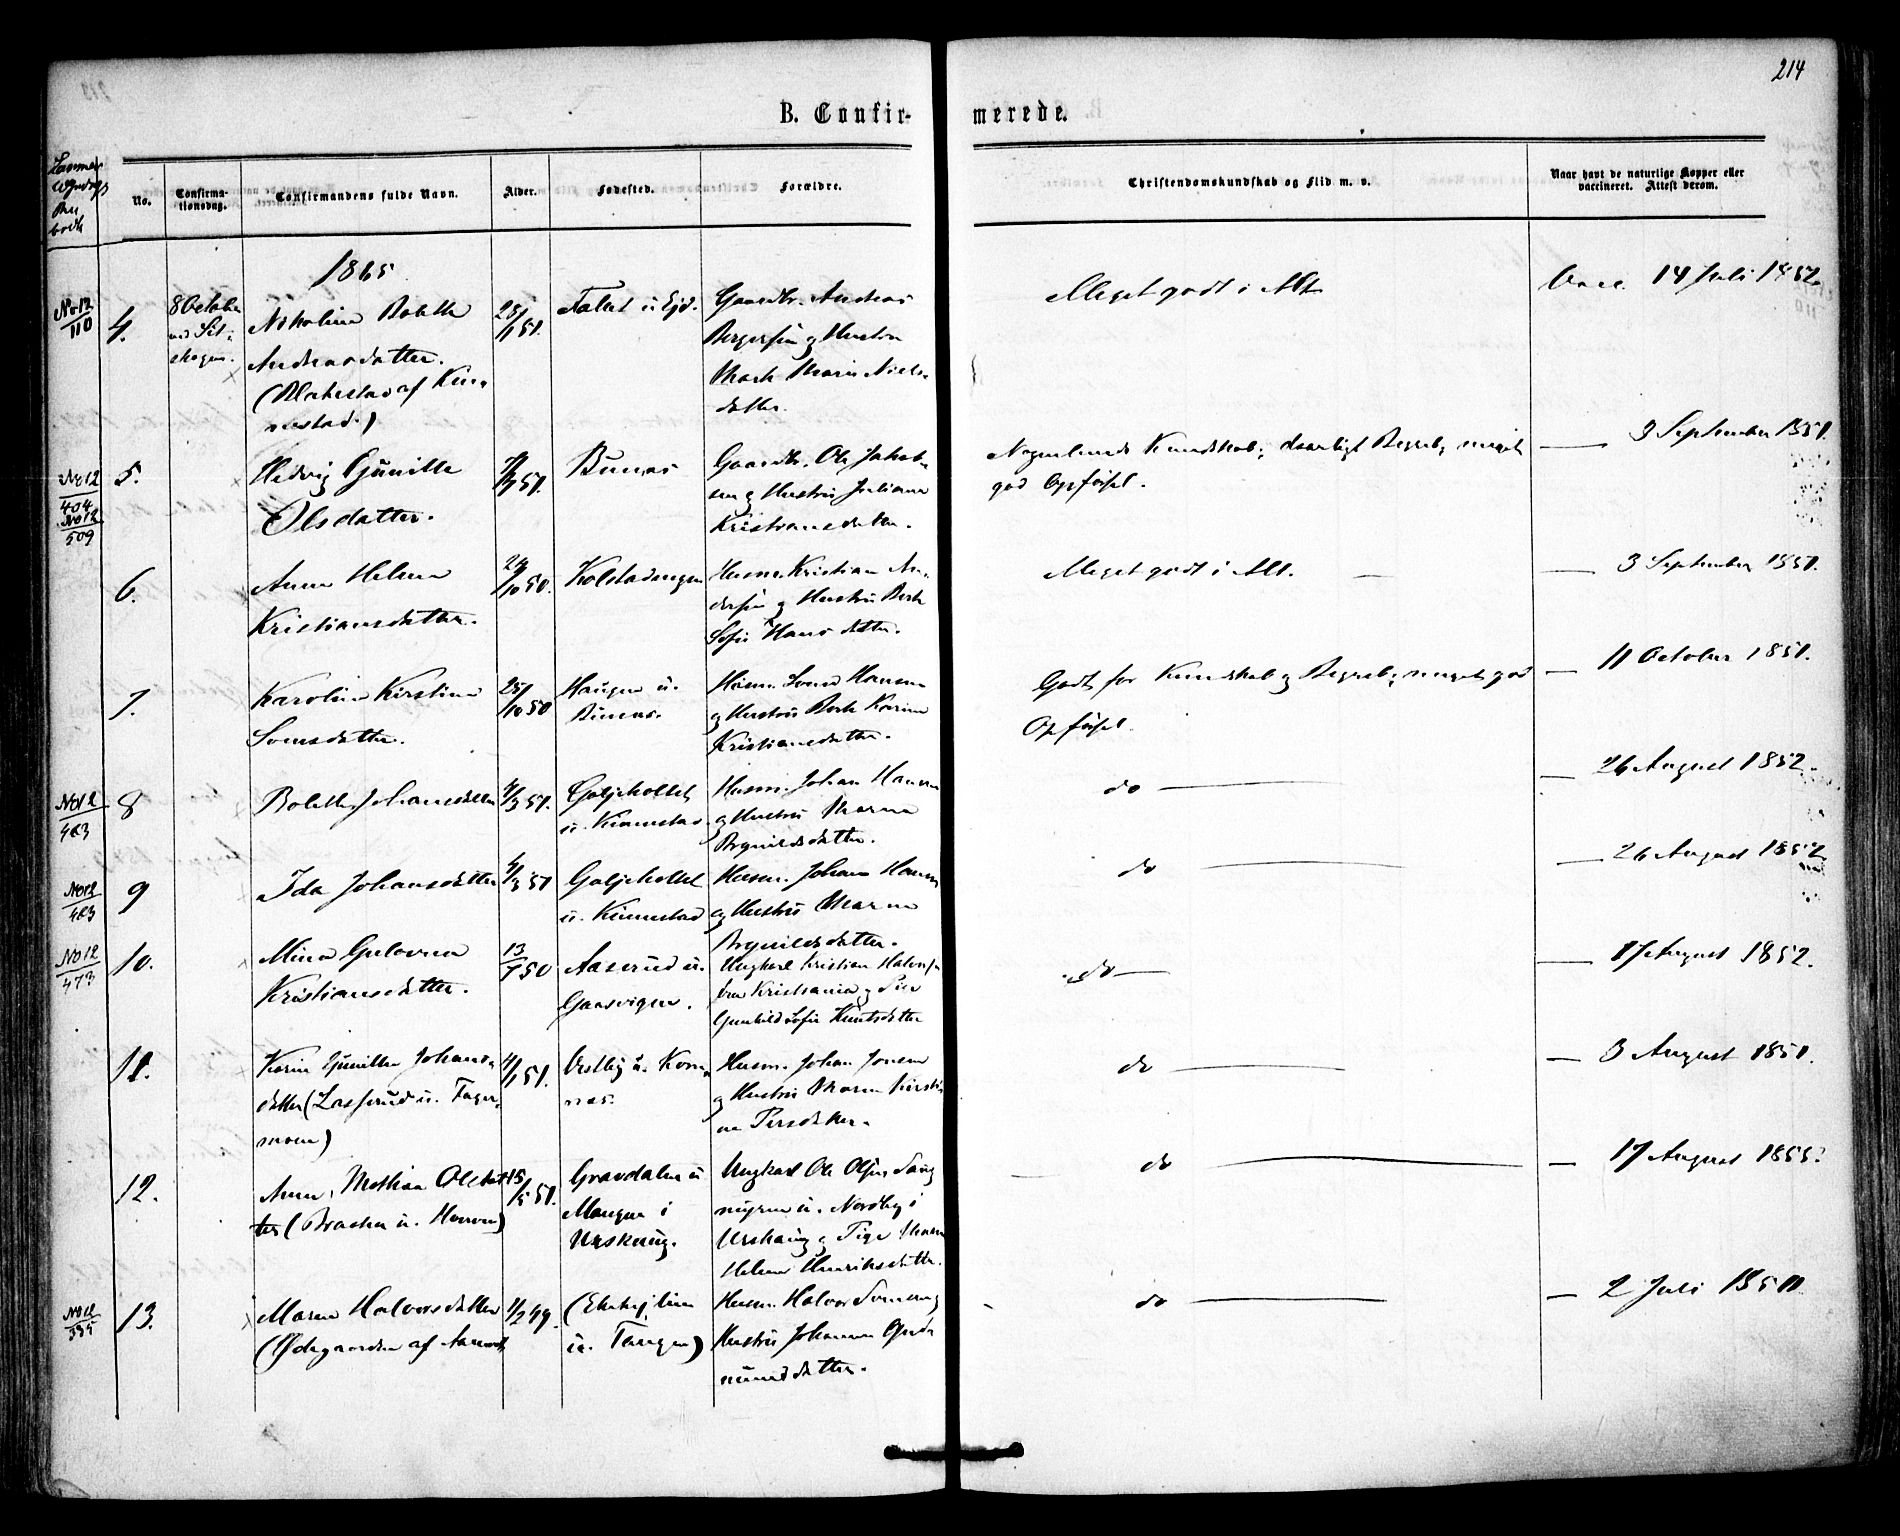 214
B. Confir-
merede.
No.
Confirma-
tionsdag.
Confirmandens fulde Navn.
Alder.
Fødested.
Forældre.
Christendomskundskab og Flid m. v.
Naar havt de naturlige Kopper eller
vaccineret. Attest derom.
1865
No 12
110
4.
8 October
Nikoline Bolette
Andreasdatter.
28/1 51.
Faltet u Ejd.
Gaardbr. Andreas
Bergersen og Hustru
Marie Niels-
datter.
Meget godt i Alt
Vacc. 14 Juli 1852
No 12
404
No 12
509
5.
Hedvig Gunille
Olsdatter.
51.
Bunæs
Gaardbr. Ole Jakob-
sen og Hustru Juliane
Kristiansdatter.
Nogenlunde Kundskab; daarligt Begreb, meget
god Opførsel.
— 3 September 1851.
6.
Anne Helene
Kristiansdatter.
29/10 50.
Kolstadengen
Husm. Kristian An-
dersen og Hustru Berte
Sofie Hansdatter.
Meget godt i Alt. —
— 3 September 1851.
7.
Karoline Kirstine
Svensdatter.
25/10 50
Haugen u.
Bunæs.
Husm. Svend Hansen
og Hustru Berte Karine
Kristiansdatter.
Godt for Kundskab og Begreb, meget god
Opførsel.
— 11 October 1851.
No 12
423
8
Bolette Johansdatter
4/3 51.
Goljeholtet
u. Kinnestad.
Husm. Johan Hansen
og Hustru Maren
Brynildsdatter.
do —
— 26 August 1852.
No 12
423
9
Ida Johansdatter
4/3 51
Goljeholtet
u. Kinnestad
Husm. Johan Hansen
og Hustru Maren
Brynildsdatter.
do —
— 26 August 1852
No 12
473
10.
Mina Gulovna
Kristiansdatter.
13/7 50
Aaserud u.
Gaasvigen.
Ungkarl Kristian Halvorsen
fra Kristiania og Pige
Gunhild Sofie Knutsdatter
do —
— 17 August 1852.
11.
Karin Gunille Johans-
datter (Lasserud u. Tager-
moen)
4/1 51.
Vestby u. Kom-
næs.
Husm. Johan Jonsen
og Hustru Maren Kirsti-
ne Persdatter.
do —
— 3 August 1851.
12.
Anne Mathea Olsdat-
ter (Braaten u. Haneval)
15/5 51.
Gravdalen u
Mangen i
Urskoug.
Ungkarl Ole Olsen Lang-
myren u. Nordby i
Urskoug og Pige Maren
Helene Henriksdatter.
do —
— 17 August 1855.
No 12
335
13.
Maren Halvorsdatter
(Ødegaarden af Aamodt
1/2 49.
u. Tangen)
Husm. Halvor Svensen og
Hustru Johanne Gud-
mundsdatter.
do —
— 2 Juli 1850.